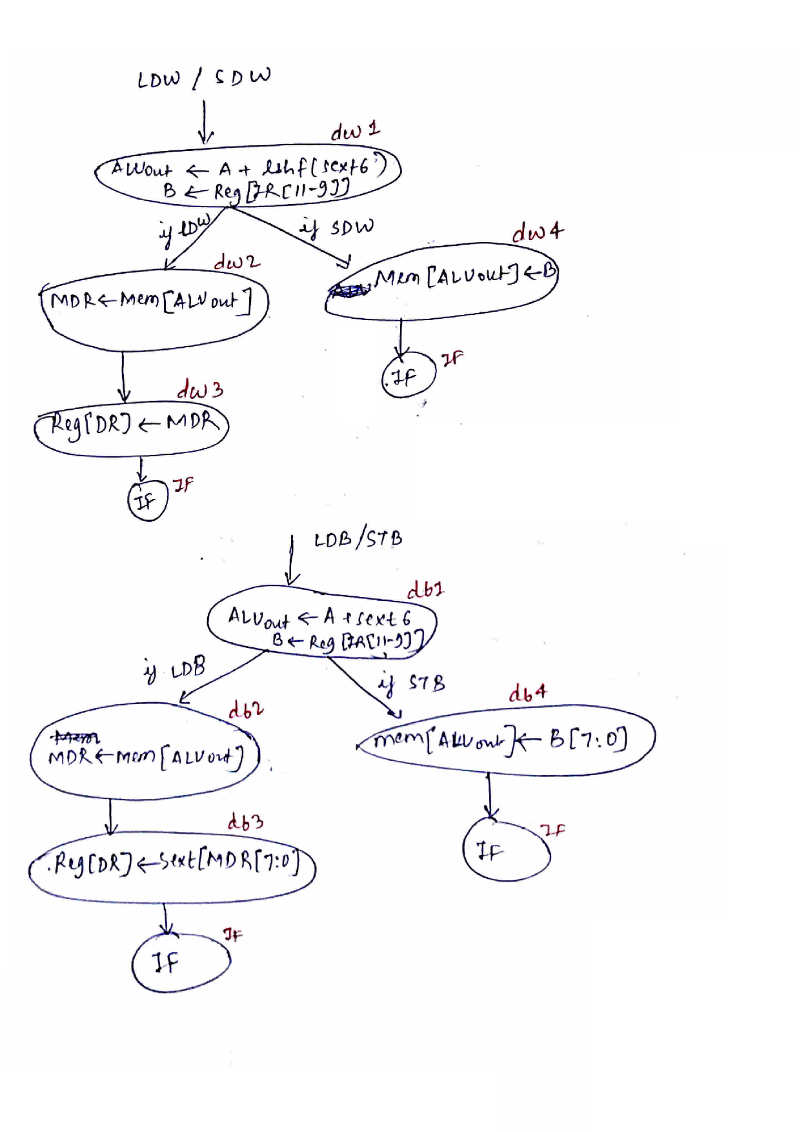 LDW / SDW
dw1
ALUout ← A + lshf(sext6)
B ← Reg[IR[11-9]]
if LDW
if SDW
dw2
dw4
MDR ← Mem[ALUout]
Mem[ALUout] ← B
IF
IF
dw3
Reg[DR] ← MDR
IF
IF
LDB/STB
db1
ALUout ← A + sext6
B ← Reg[IR[11-9]]
if LDB
if STB
db2
db4
MDR ← Mem[ALUout]
mem[ALUout] ← B[7:0]
db3
IF
IF
Reg[DR] ← Sext[MDR[7:0]
IF
IF